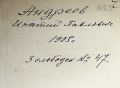 Андреев
Игнатий Павлович
1905 г.
Злободев № 47.